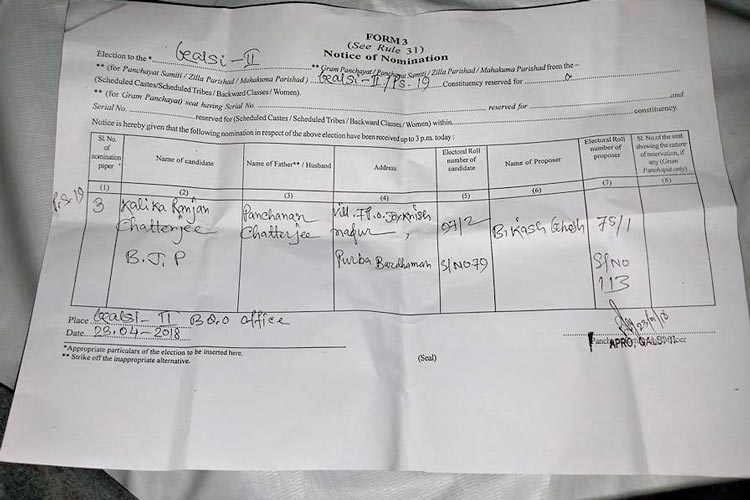 FORM 3
(See Rule 31)
Notice of Nomination
Election to the * Galsi-II ** Gram Panchayat / Panchayat Samiti / Zilla Parishad / Mahakuma Parishad from the –
** (for Panchayat Samiti / Zilla Parishad / Mahakuma Parishad) Galsi-II/PS-19 Constituency reserved for
(Scheduled Castes/Scheduled Tribes / Backward Classes / Women).
** (for Gram Panchayat) seat having Serial No. reserved for and
Serial No. reserved for (Scheduled Castes / Scheduled Tribes / Backward Classes / Women) within constituency.
Notice is hereby given that the following nomination in respect of the above election have been received up to 3 p.m. today :
Sl. No. of nomination paper Name of candidate Name of Father** / Husband Address Electoral Roll number of candidate Name of Proposer Electoral Roll number of proposer Sl. No. of the seat showing the nature of reservation, if any (Gram Panchayat only)
(1) (2) (3) (4) (5) (6) (7) (8)
P.S 19 3 Kalika Ranjan Panchanan Vill
Chatterjee Chatterjee 07/2 Bikash Ghosh 75/1
B.J.P Purba Bardhaman S/NO 79 S/NO
113
Place Galsi-II B.D.O office
Date 23.04-2018
23/4/18
APRO, GALSI-II
*Appropriate particulars of the election to be inserted here.
** Strike off the inappropriate alternative.
(Seal)